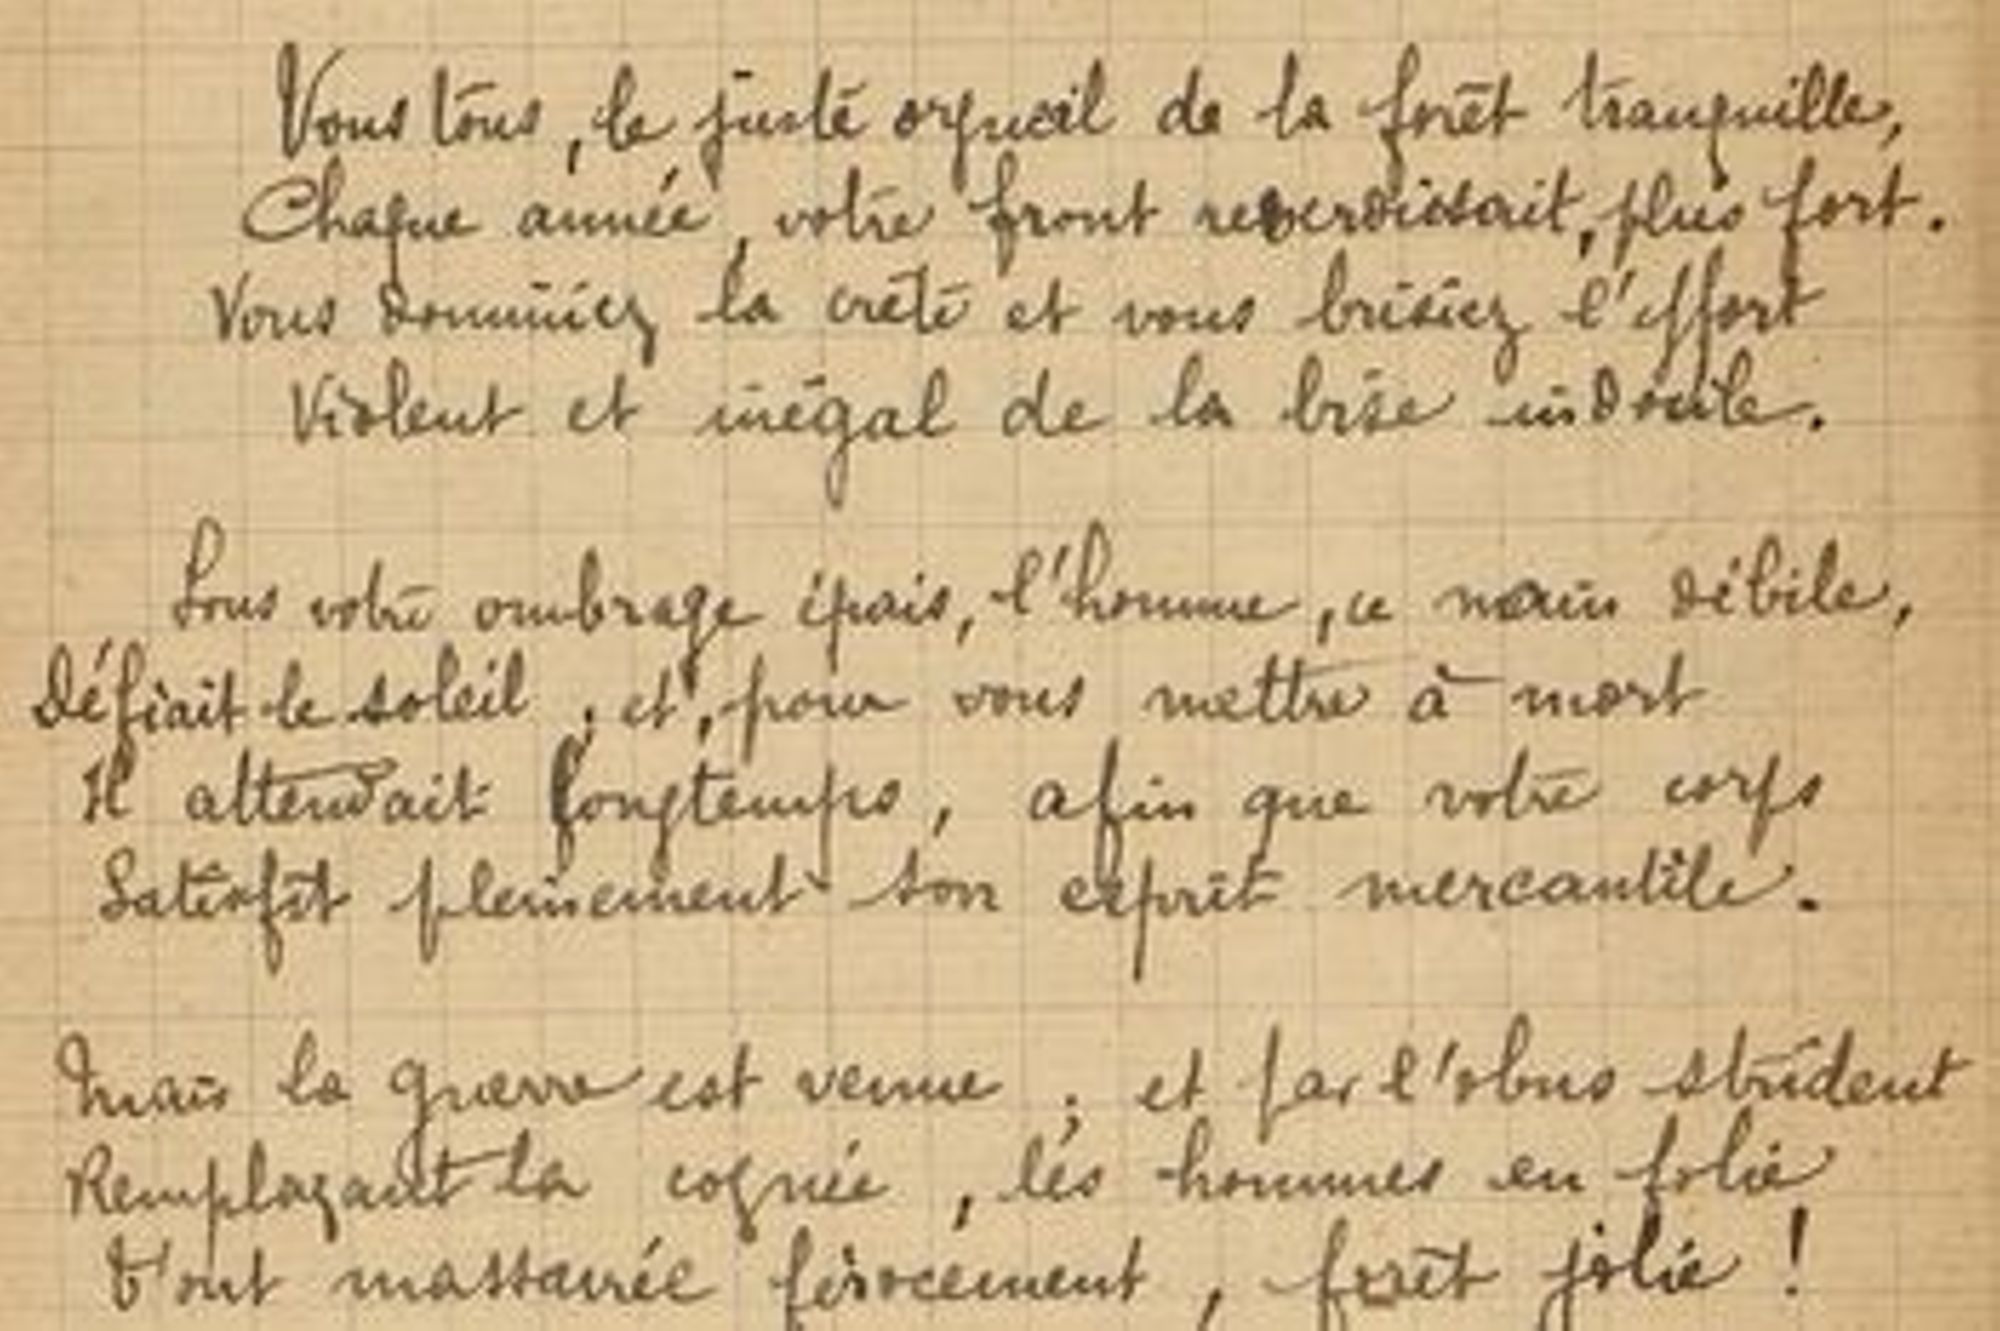 Vous tous, le juste orgueil de la forêt tranquille,
Chaque année, votre front reverdissait, plus fort.
Vous dominiez la crête et vous brisiez l'effort
Violent et inégal de la brise indocile.
Sous votre ombrage épais, l'homme, ce nain débile,
Défiait le soleil ; et, pour vous mettre à mort
Il attendait longtemps, afin que votre corps
Satisfît pleinement son esprit mercantile.
Mais la guerre est venue ; et par l'obus strident
Remplaçant la cognée, les hommes en folie
T'ont massacrée férocement, forêt jolie !